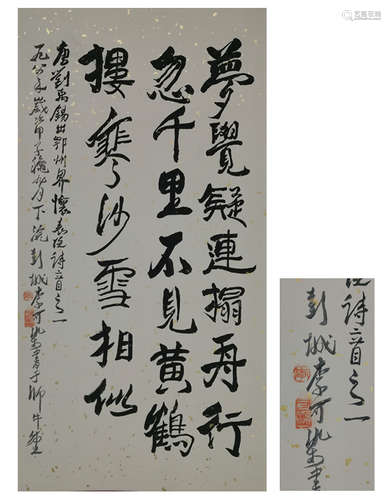 夢覺疑連榻舟行
忽千里不見黃鶴
樓寒沙雪相似
唐劉禹錫出鄂州界懷表臣詩二首之一
一九八四年歲次甲子穐九月下浣彭城李可染書于師牛堂
臣詩二首之一
彭城李可染書